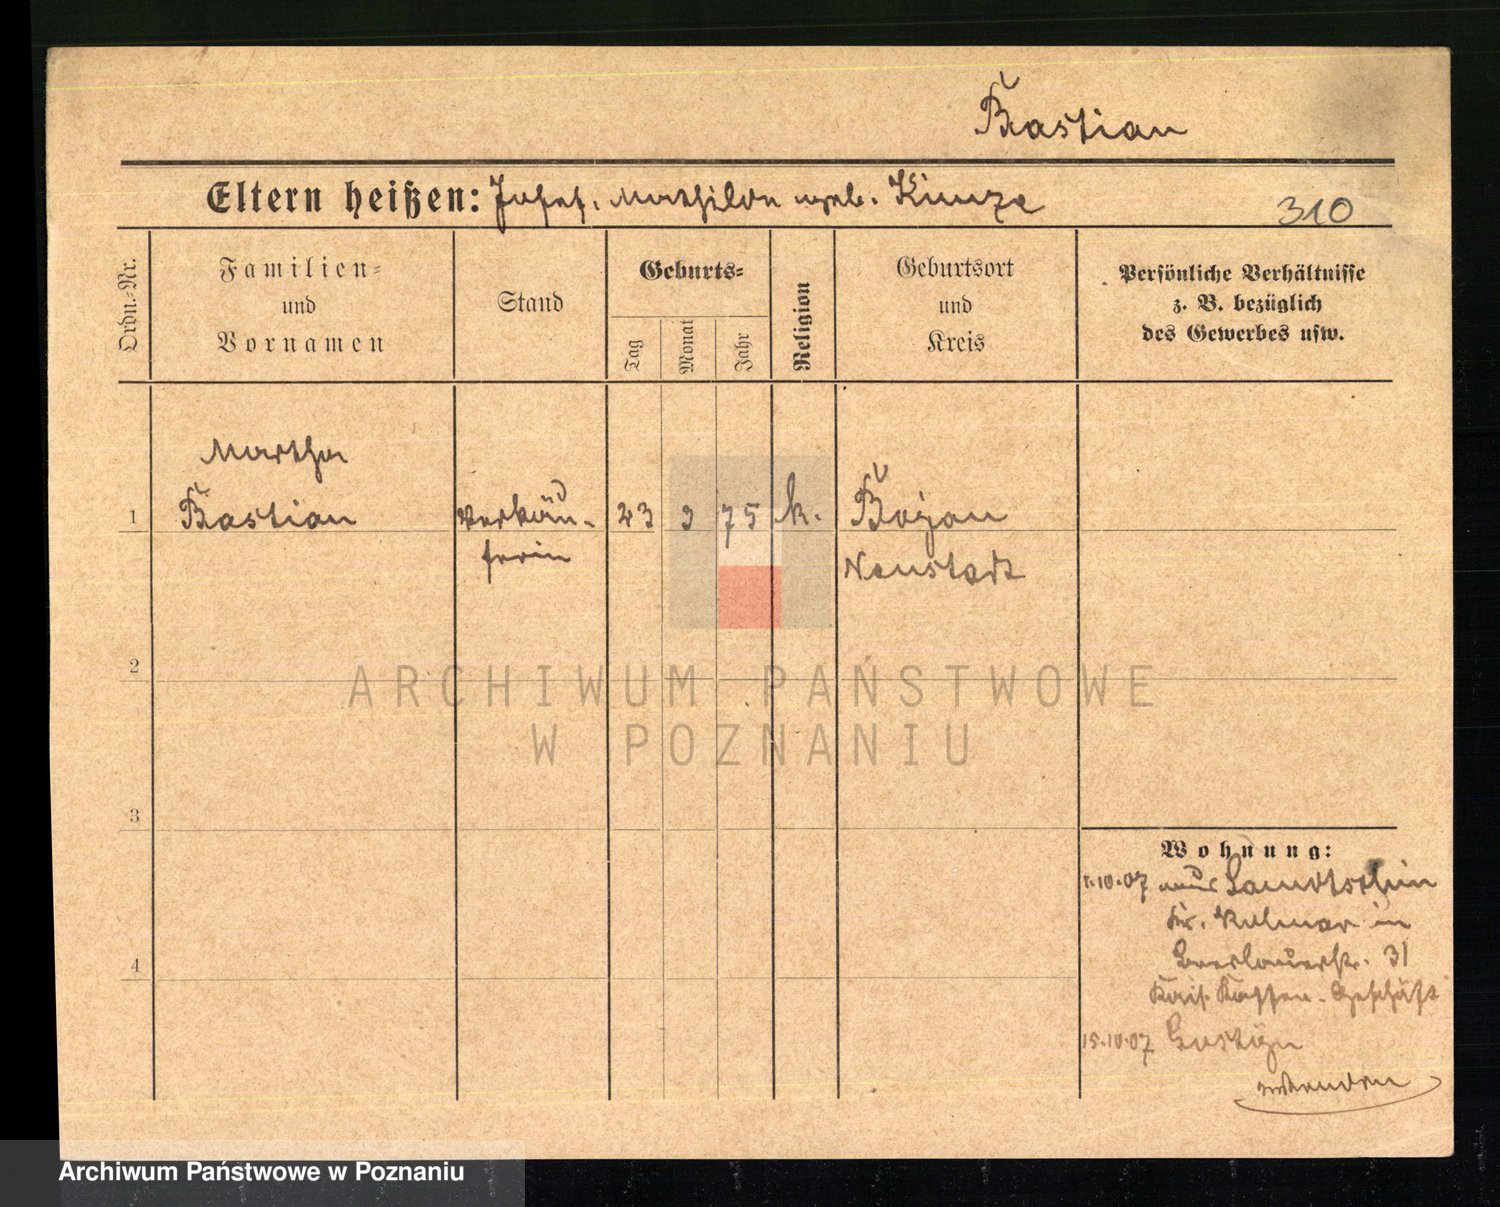 Bastian
Eltern heißen: Josef, Mathilde geb. Kunze
310
Ordn.-Nr.
Familien-
und
Vornamen
Stand
Geburts-
Tag
Monat
Jahr
Religion
Geburtsort
und
Kreis
Persönliche Verhältnisse
z. B. bezüglich
des Gewerbes usw.
Martha
1 Bastian Verkäu- 23 3 75 k. Bojan
ferin Neustadt
2
3
4
Wohnung:
1.10.07 aus
Kr. Kolmar in
Breslauerstr. 31
Kais. Geschäft
15.10.07 Gostyn
ARCHIWUM PAŃSTWOWE
W POZNANIU
Archiwum Państwowe w Poznaniu